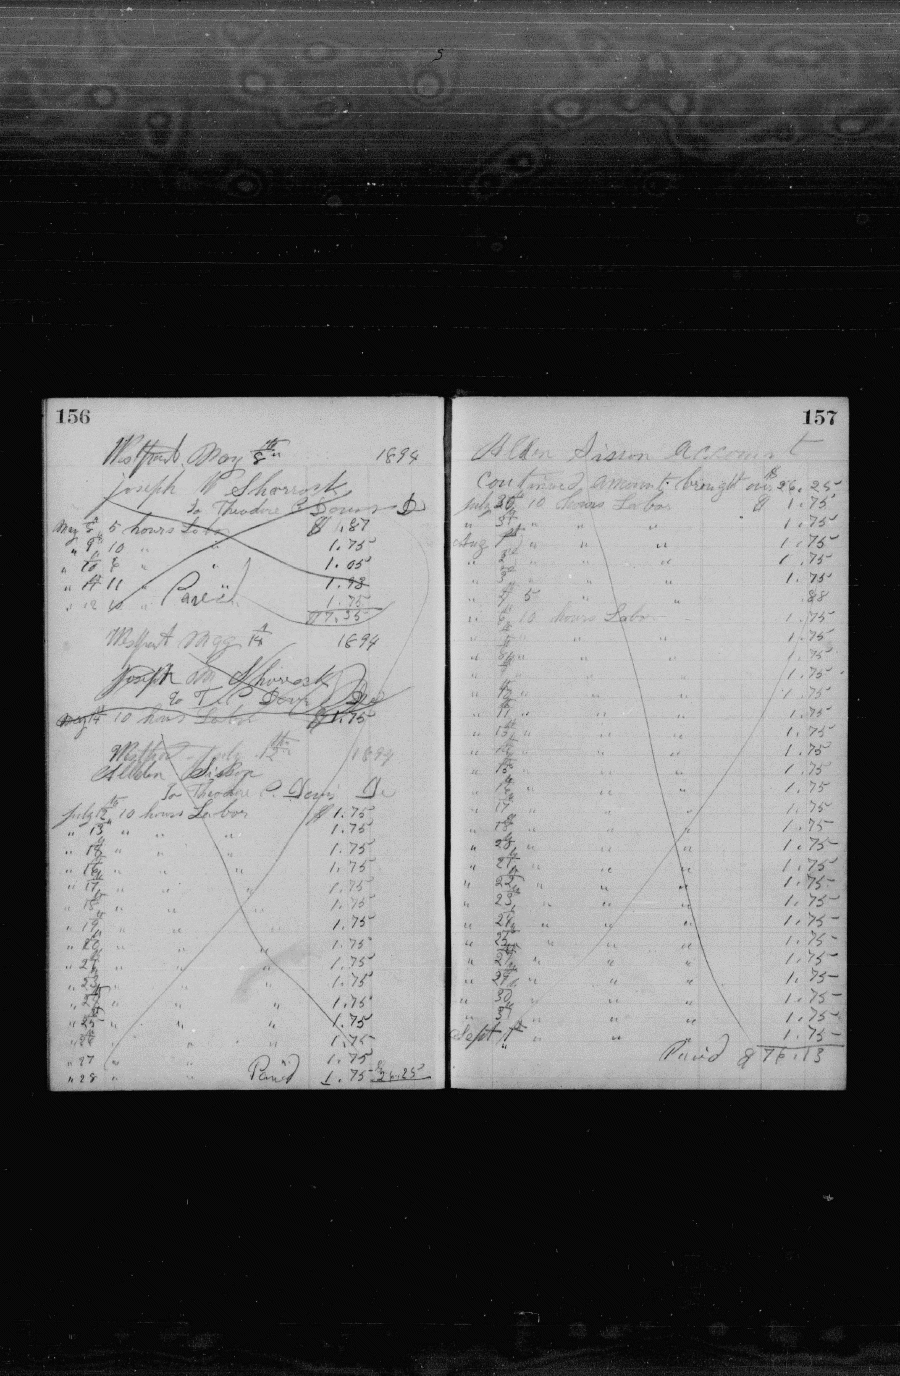 5
156
Westport May 8th 1894
Joseph W Sharrock
To Theodore P. Davis Dr
May 8 5 hours Labor $ 1.87
" 9th 10 " " 1.75
" 10 6 " " 1.05
" 11 11 " " 1.93
" 12 10 " Paid 1.75
Westport May 1894
Joseph W Sharrock
To T. P Davis Dr
May 14 10 hours Labor $1.75
Westport July 12th 1894
Allden Sisson
To Theodore P. Davis Dr
July 12th 10 hours Labor $ 1.75
" 13 " " " 1.75
" " " " 1.75
" 16 " " 1.75
" 17 " " " 1.75
" 18 " " " 1.75
" 19 " " " 1.75
" 20 " " 1.75
" 21 " " " 1.75
" " " " 1.75
" " " " 1.75
" 25 " " " 1.75
" 26 " " 1.75
" 27 " " 1.75
" 28 " Paid 1.75 26.25
157
Alden Sisson Account
Continued amount brought over $26.25
July 30th 10 hours Labor $ 1.75
" 31 " " " 1.75
Aug 1st " " " 1.75
" 2 " " " 1.75
" 3 " " " 1.75
" 4 5 " " .88
" 6 10 hours Labor 1.75
" " " " 1.75
" 8 " " " 1.75
" " " " 1.75
" " " " 1.75
" 11 " " " 1.75
" 13 " " " 1.75
" " " " 1.75
" 15 " " " 1.75
" " " " 1.75
" 17 " " " 1.75
" 18 " " " 1.75
" " " " 1.75
" 21 " " " 1.75
" " " " 1.75
" 23 " " " 1.75
" " " " 1.75
" 25 " " " 1.75
" " " " 1.75
" " " " 1.75
" 30 " " " 1.75
" 31 " " " 1.75
Sept 1st " " " 1.75
Paid $ 76.13